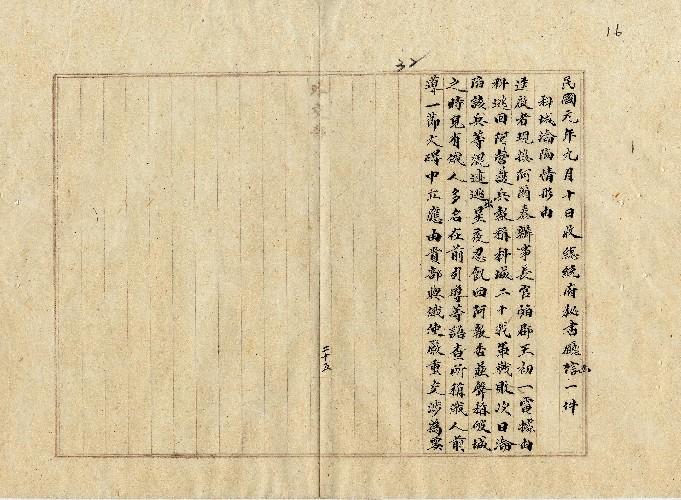 16
32
民國元年九月十日收總統府秘書廳信一件
科城淪陷情形由
逕啟者現接阿爾泰辦事長官帕郡王初一電據由
科逃回阿營護兵報稱科城二十我軍戰敗次日淪
陷該兵等混迹逃出星夜忍飢回阿報告並聲稱破城
之時見有俄人多名在前引導等語查所稱俄人前
導一節大礙中立應由貴部與俄使嚴重交涉為要
二十五